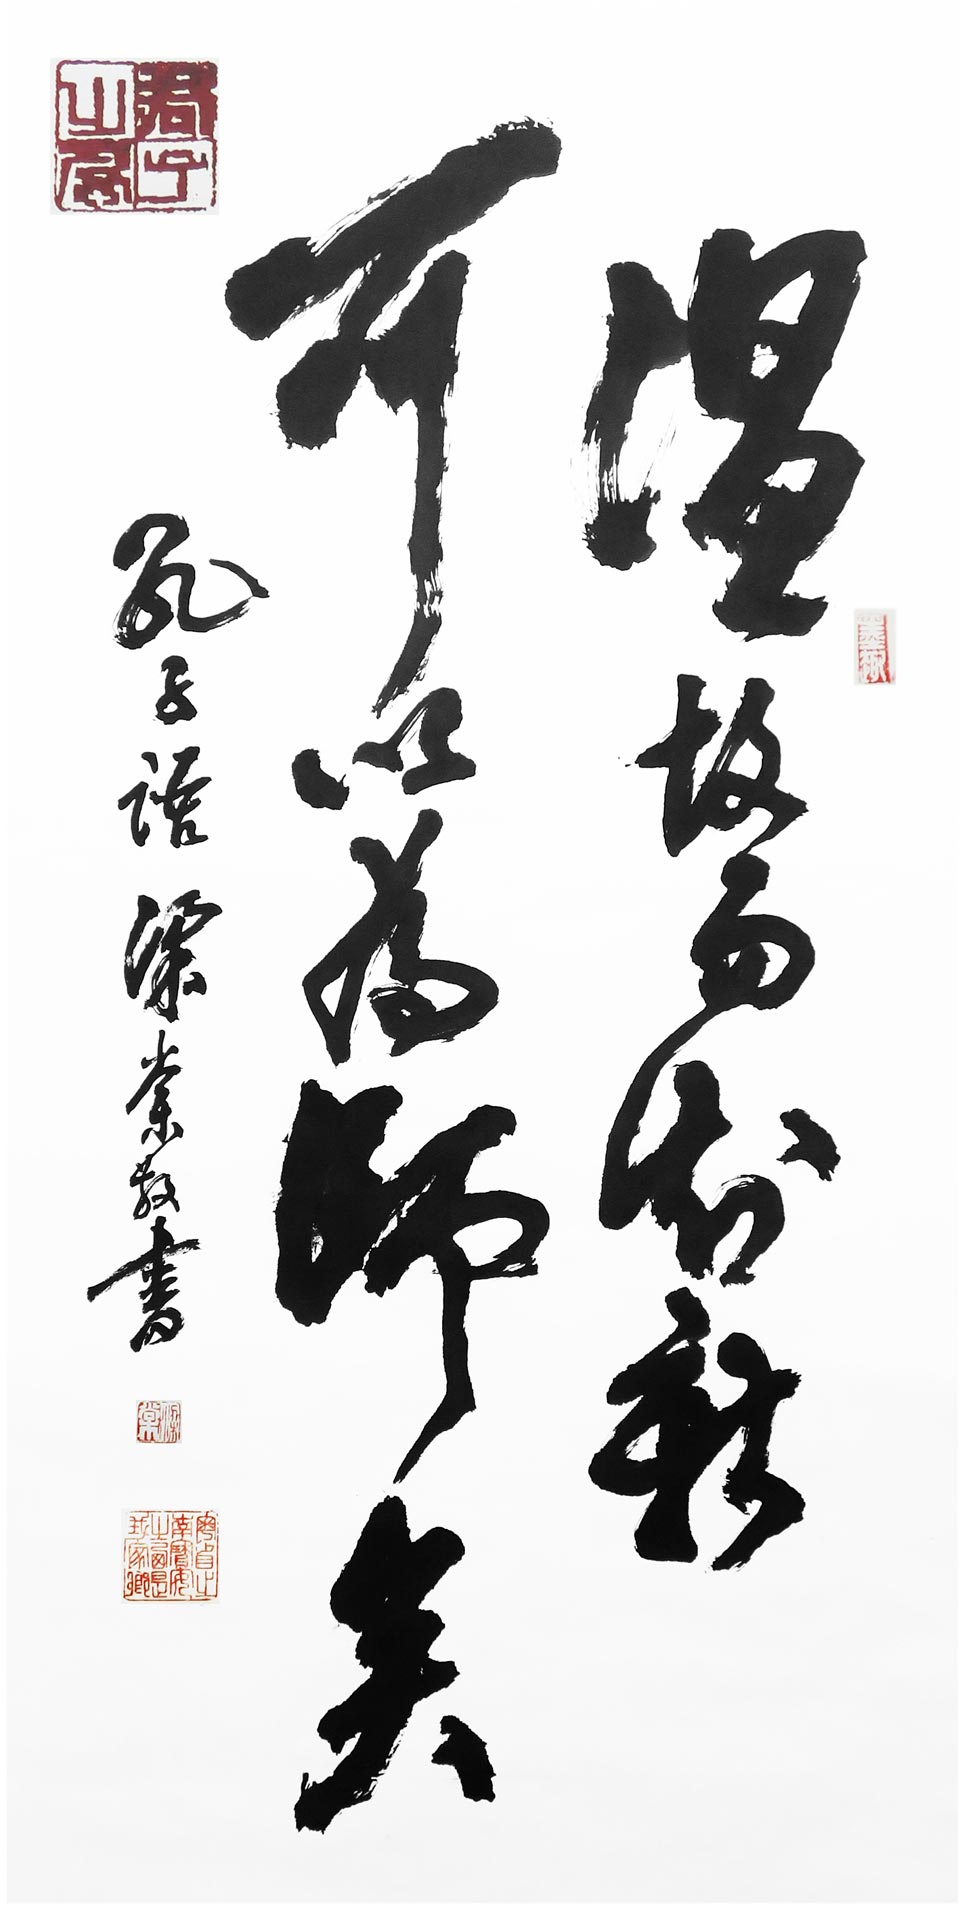 温故而知新
可以為師矣
孔子語 梁崇教書